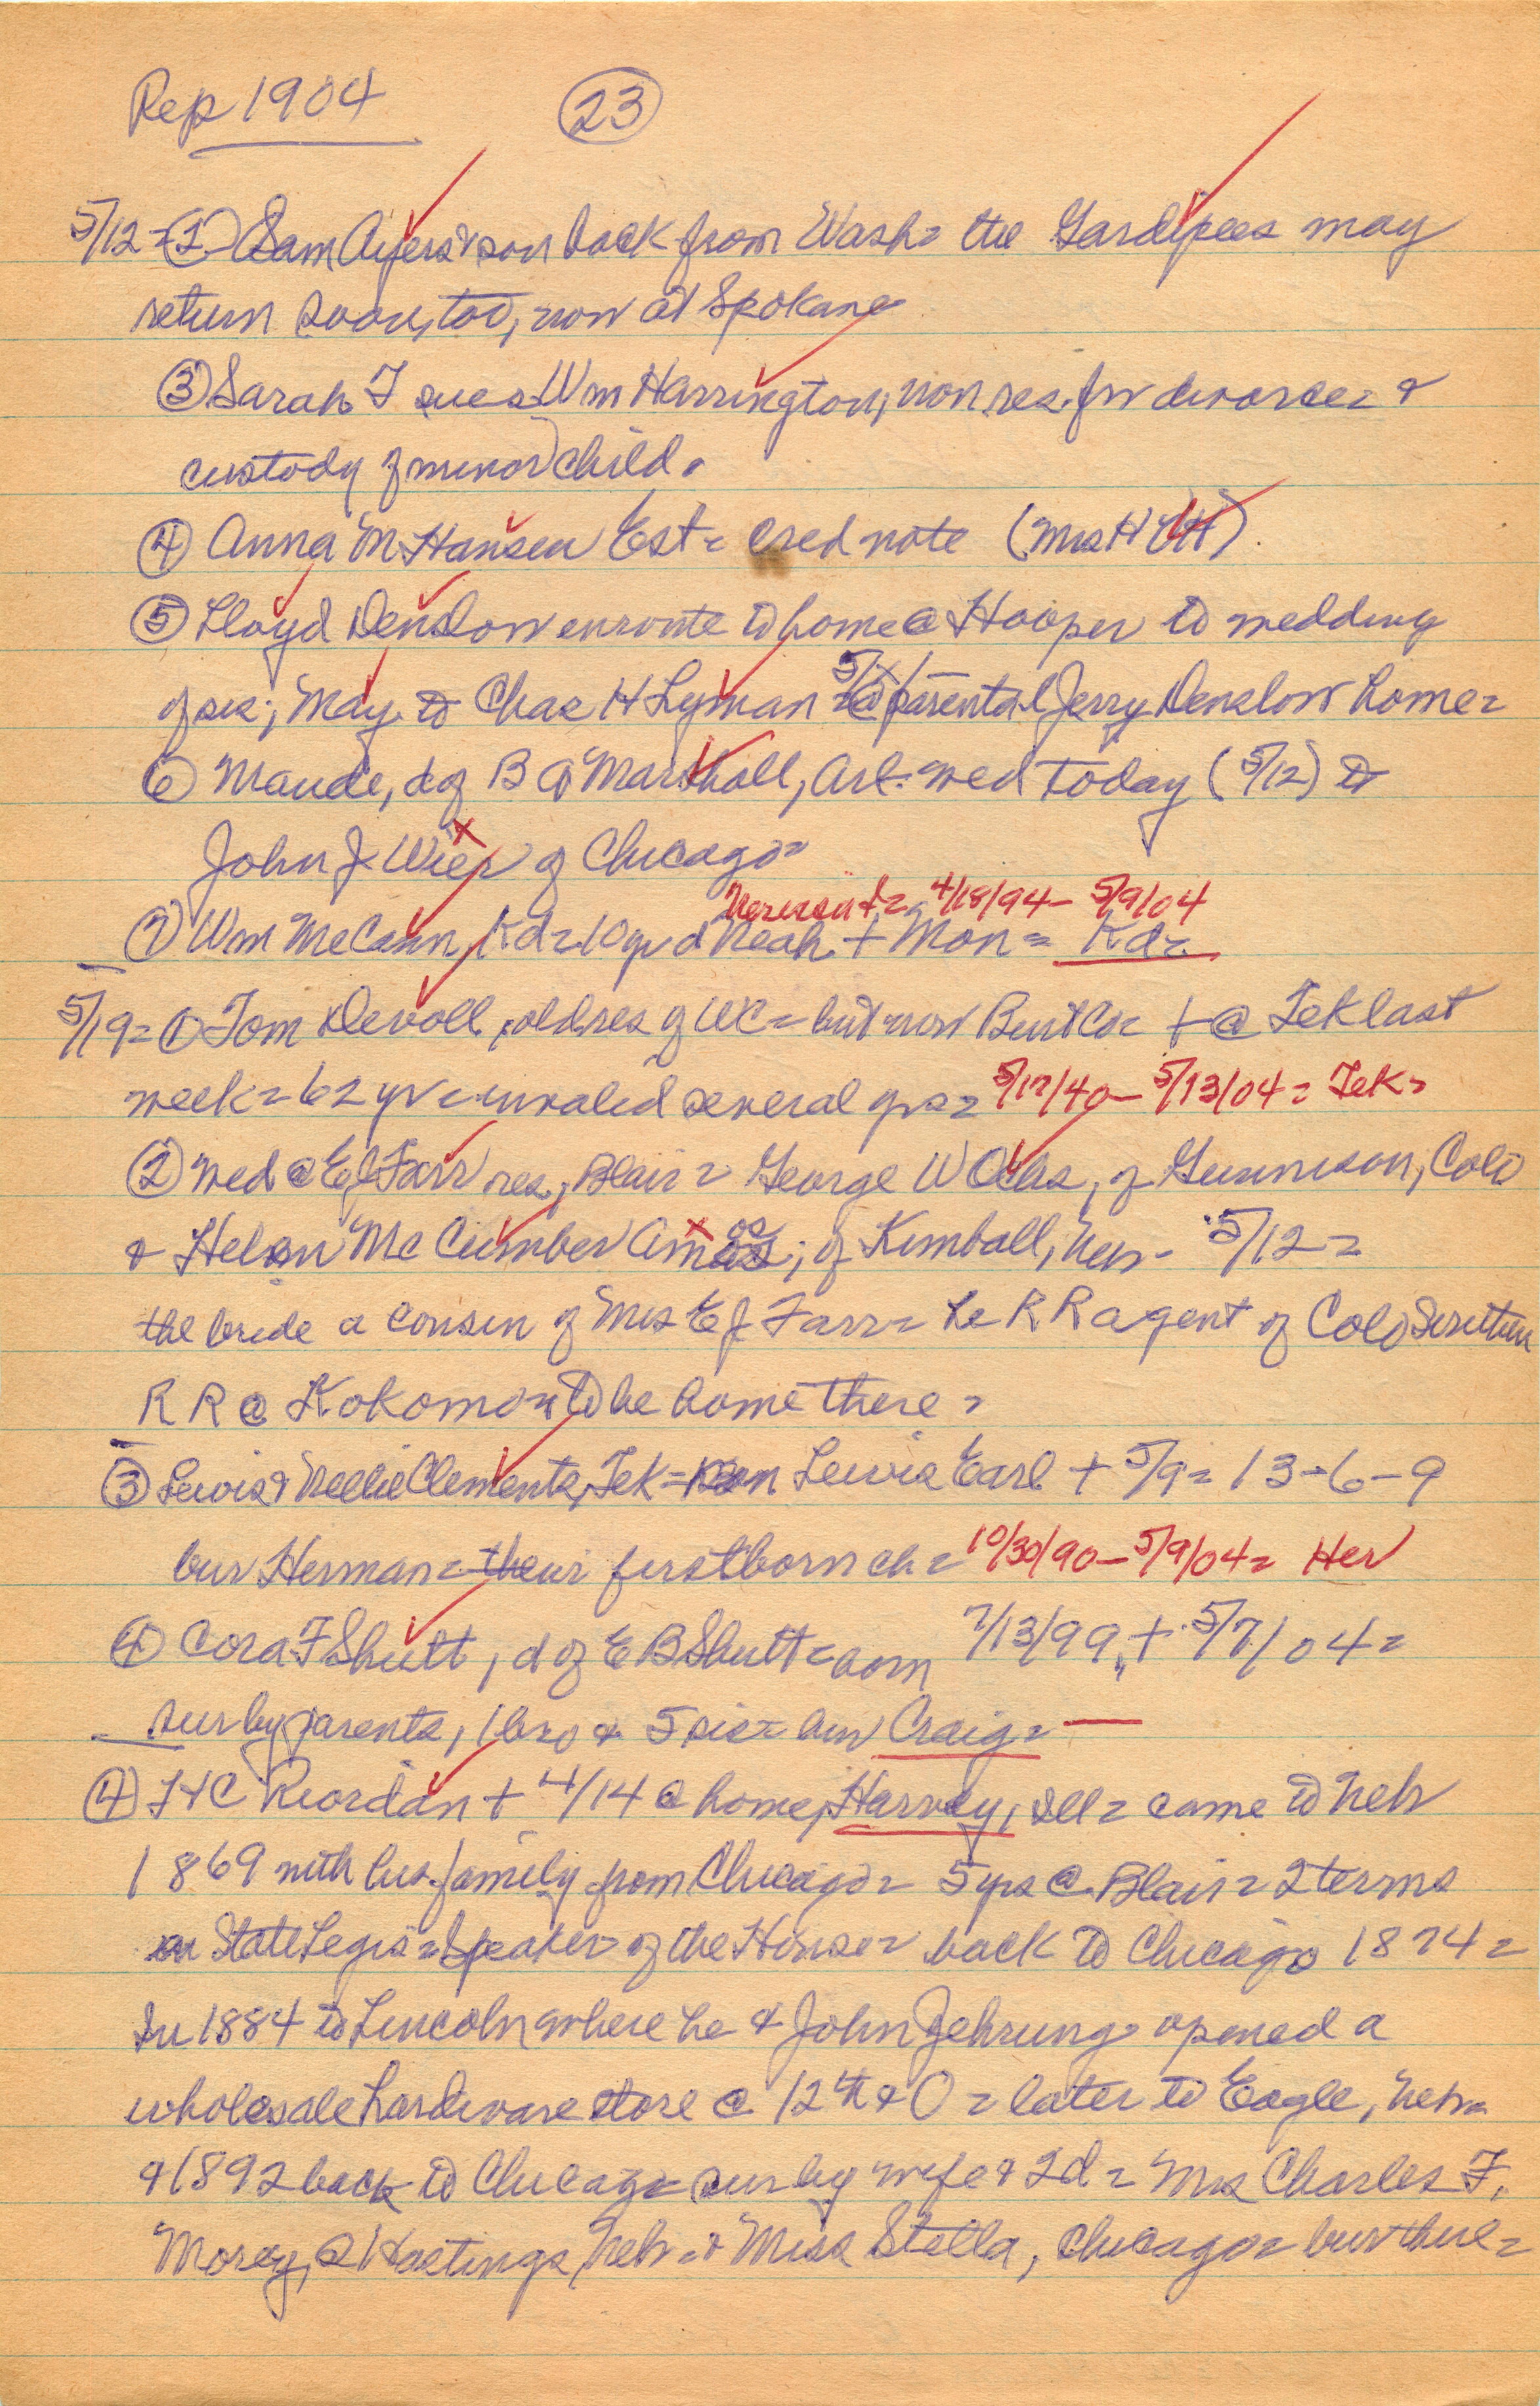 Rep 1904 (23)
5/12 = (1) Sam Ayers & son back from Wash = the Gardipees may
return soon, too, now at Spokane
(3) Sarah F sues Wm Harrington, non res. for divorce = &
custody of minor child.
(4) Anna M Hansen Est = cred note (Mrs H H)
(5) Lloyd Denslow enroute to home @ Hooper to wedding
of sis; May to Chas H Lyman = @ parental Jerry Denslow home =
(6) Maude, d of B Q Marshall, Arl. wed today (5/12) to
John J Wier of Chicago =
4/18/94 - 5/9/04
(7) Wm McCann, Kd = 10 yr d Neah + Mon = Kd =
5/19 = (1) Tom Devoll, old res of WC = but now Burt Co = + @ Tek last
week = 62 yr = invalid several yrs = 5/17/40 - 5/13/04 = Tek =
(2) Wed @ E J Farr res, Blair = George W Ochs, of Gunnison, Colo
& Helen McCumber Amos; of Kimball, Neb - 5/12 =
the bride a cousin of Mrs E J Farr = he R R agent of Colo Southern
R R @ Kokomo = to be home there =
(3) Lewis & Nellie Clements, Tek = son Lewis Earl + 5/9 = 13-6-9
bur Herman = their firstborn ch = 10/30/90 - 5/9/04 = Her
(4) Cora F Shutt, d of E B Shutt = born 7/13/99, + 5/7/04 =
sur by parents, 1 bro & 5 sis = bur Craig =
(4) F C Riordan + 4/14 @ home, Harvey, Ill = came to Neb
1869 with his family from Chicago = 5 yrs @ Blair = 2 terms
in State Legis = Speaker of the House = back to Chicago 1874 =
In 1884 to Lincoln where he & John Gehrung opened a
wholesale hardware store @ 12th & O = later to Eagle, Neb =
& 1892 back to Chicago = sur by wife & 2 d = Mrs Charles F.
Morey, @ Hastings, Neb = & Miss Stella, Chicago = bur there =